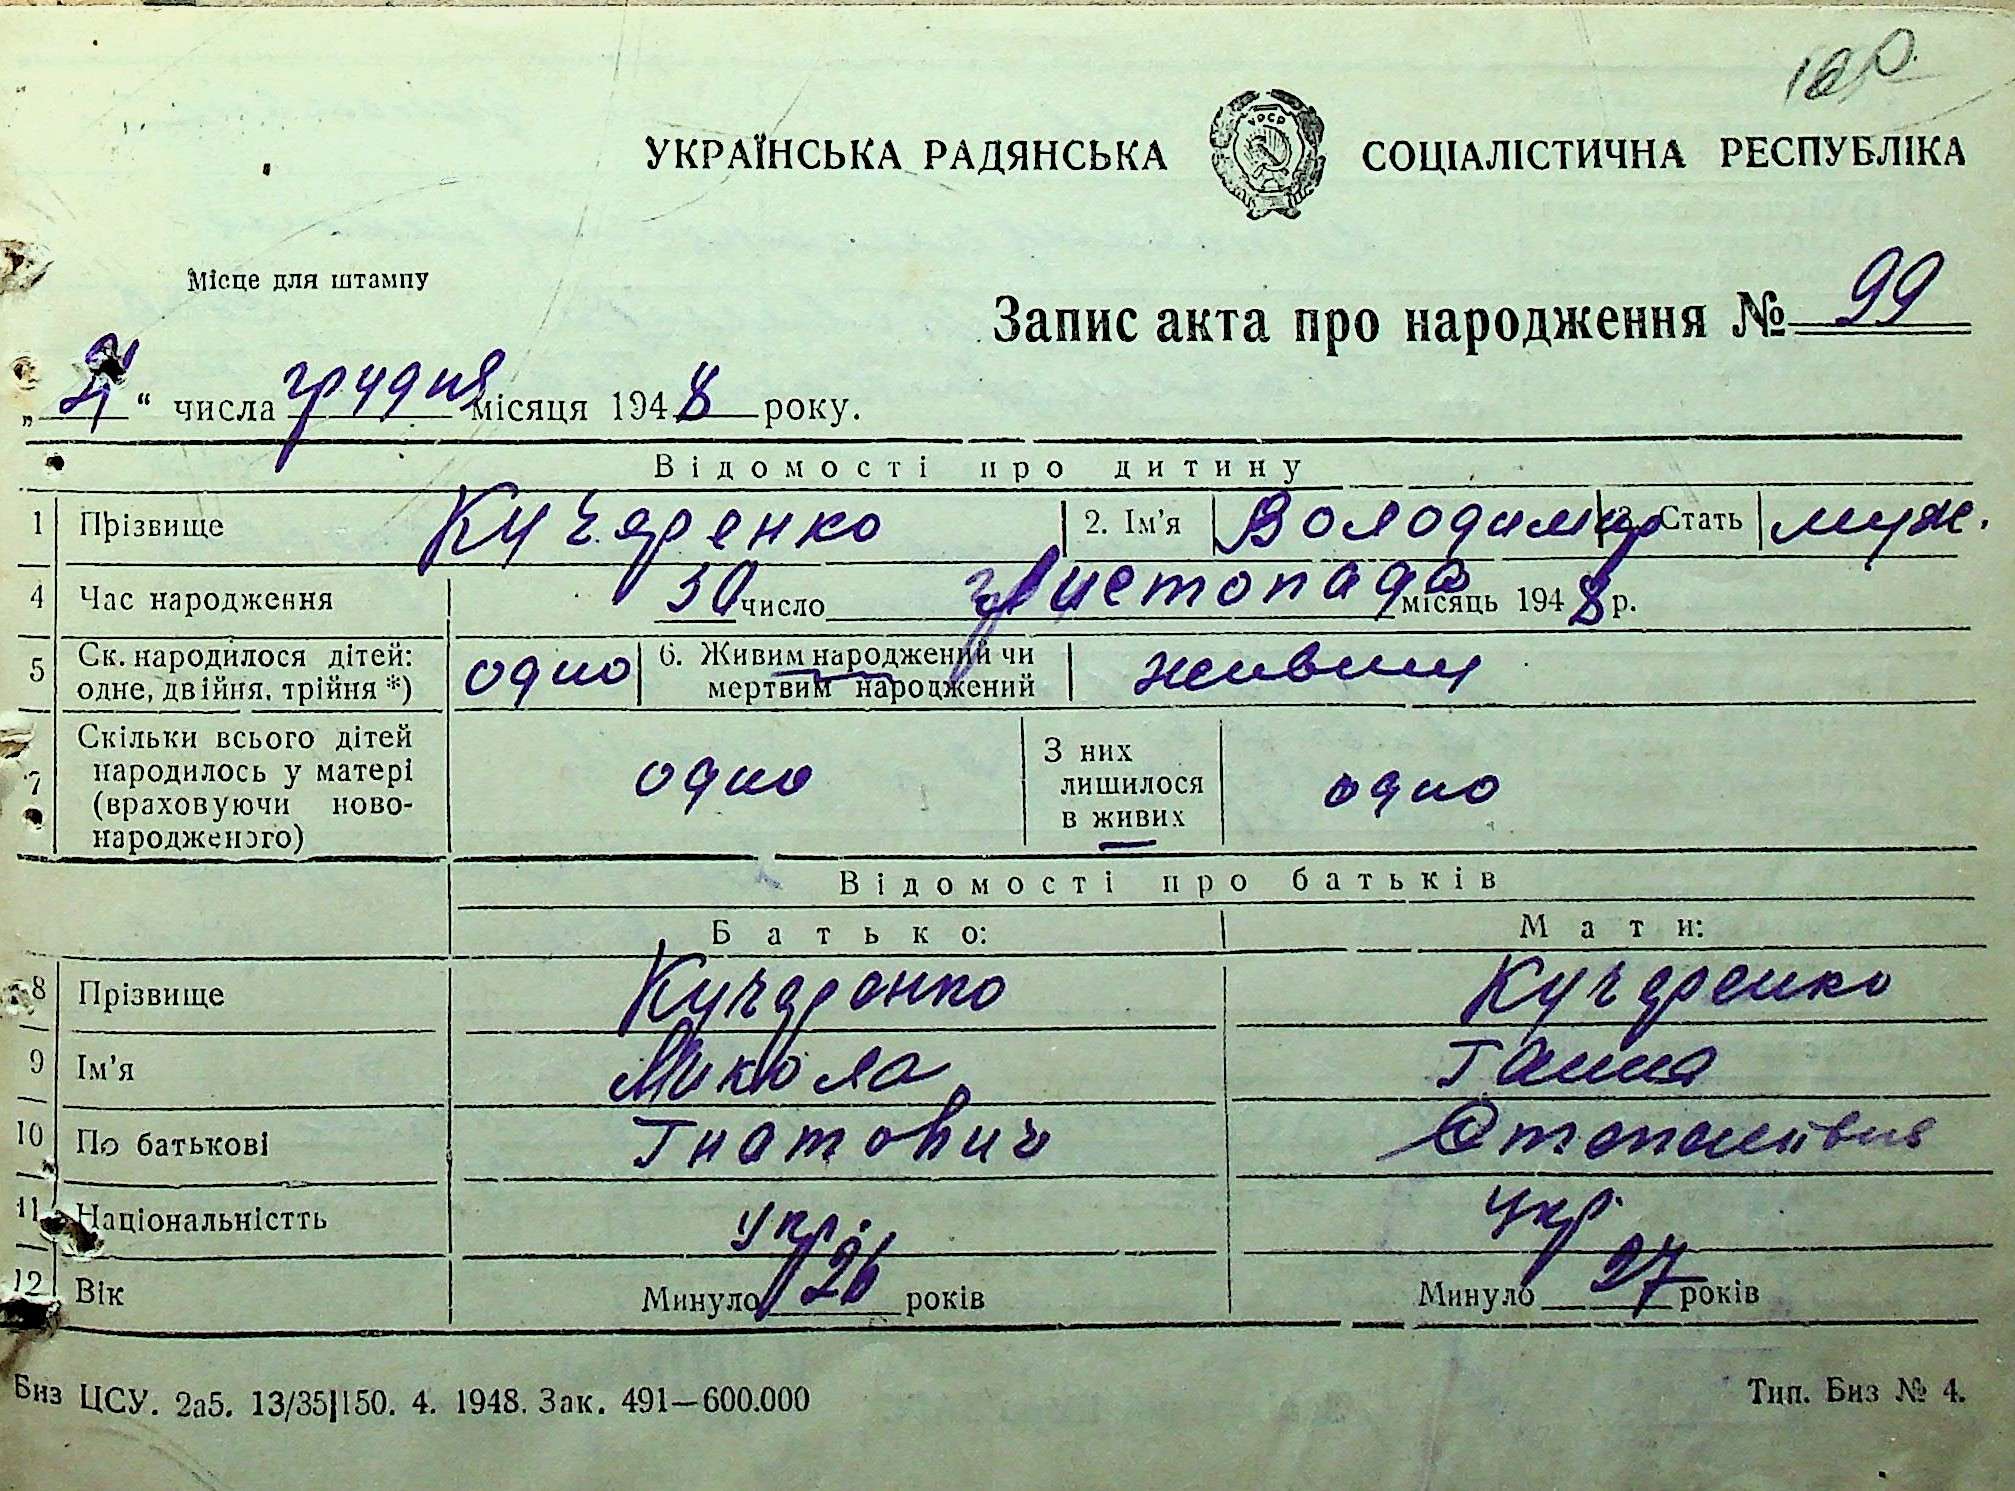 УКРАЇНСЬКА РАДЯНСЬКА СОЦІАЛІСТИЧНА РЕСПУБЛІКА
УРСР
Місце для штампу
Запис акта про народження № 99
„ “ числа грудня місяця 1948 року.
Відомості про дитину
1 Прізвище Кучеренко 2. Ім’я Володимир 3. Стать муж.
4 Час народження 30 число листопада місяць 1948 р.
5 Ск. народилося дітей: одно 6. Живим народжений чи живим
одне, двійня, трійня *) мертвим народжений
7 Скільки всього дітей одно З них одно
народилось у матері лишилося
(враховуючи ново- в живих
народженого)
Відомості про батьків
Батько: Мати:
8 Прізвище Кучеренко Кучеренко
9 Ім’я Микола Ганна
10 По батькові Гнатович
11 Національністть укр. укр.
12 Вік Минуло 26 років Минуло 27 років
Биз ЦСУ. 2а5. 13/35|150. 4. 1948. Зак. 491—600.000 Тип. Биз № 4.